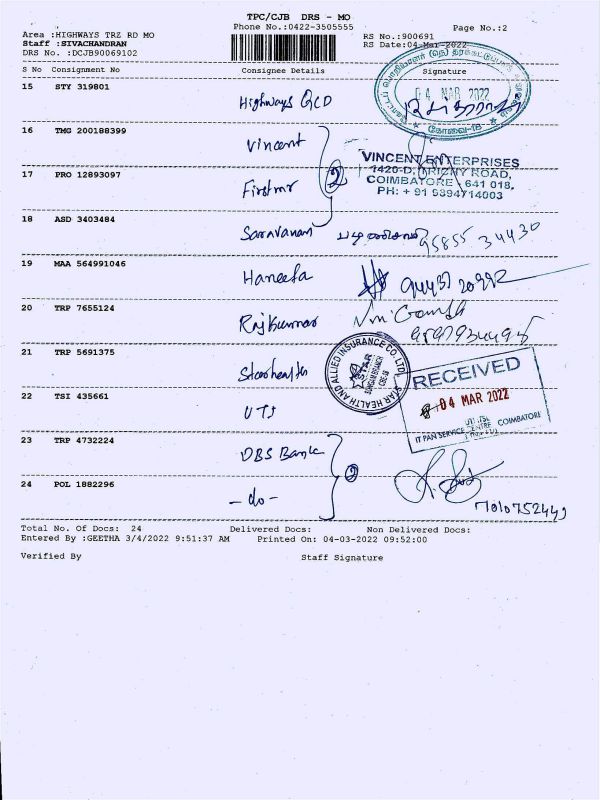 TPC/CJB DRS - MO
Phone No.:0422-3505555
Page No.:2
Area :HIGHWAYS TRZ RD MO
Staff :SIVACHANDRAN
DRS No. :DCJB90069102
RS No.:900691
RS Date:04-Mar-2022
S No Consignment No Consignee Details Signature
15 STY 319801
Highways QCD
04 MAR 2022
கோவை-18
16 TMG 200188399
Vincent
VINCENT ENTERPRISES
1420-D, TRICHY ROAD,
COIMBATORE - 641 018.
PH: + 91 9894714003
17 PRO 12893097
Firstmr
2
18 ASD 3403484
Saravanan 95855 34430
19 MAA 564991046
Haneefa
20 TRP 7655124
Rajkumar
21 TRP 5691375
Starhealth
STAR HEALTH AND ALLIED INSURANCE CO. LTD
STAR
RECEIVED
04 MAR 2022
IT PAN SERVICE CENTRE COIMBATORE
22 TSI 435661
UTI
23 TRP 4732224
DBS Bank
2
24 POL 1882296
-do-
7010752449
Total No. Of Docs: 24 Delivered Docs: Non Delivered Docs:
Entered By :GEETHA 3/4/2022 9:51:37 AM Printed On: 04-03-2022 09:52:00
Verified By Staff Signature